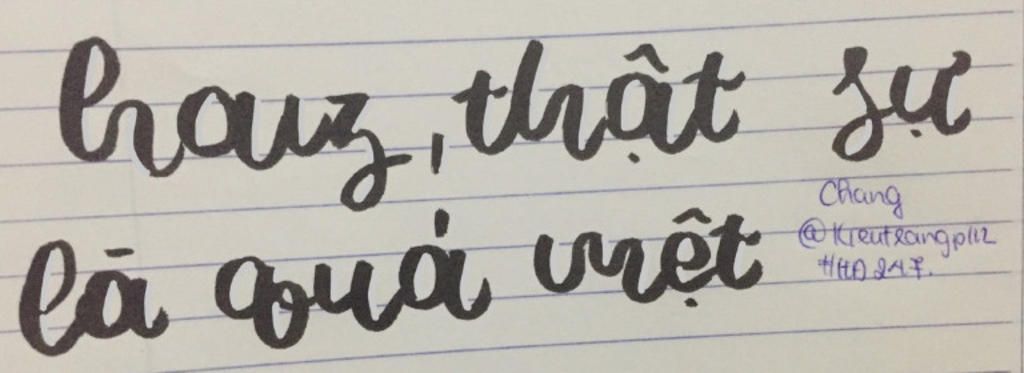 hauz, thật sự
là quá mệt
Chang
@Kieutrangp112
#HD247.